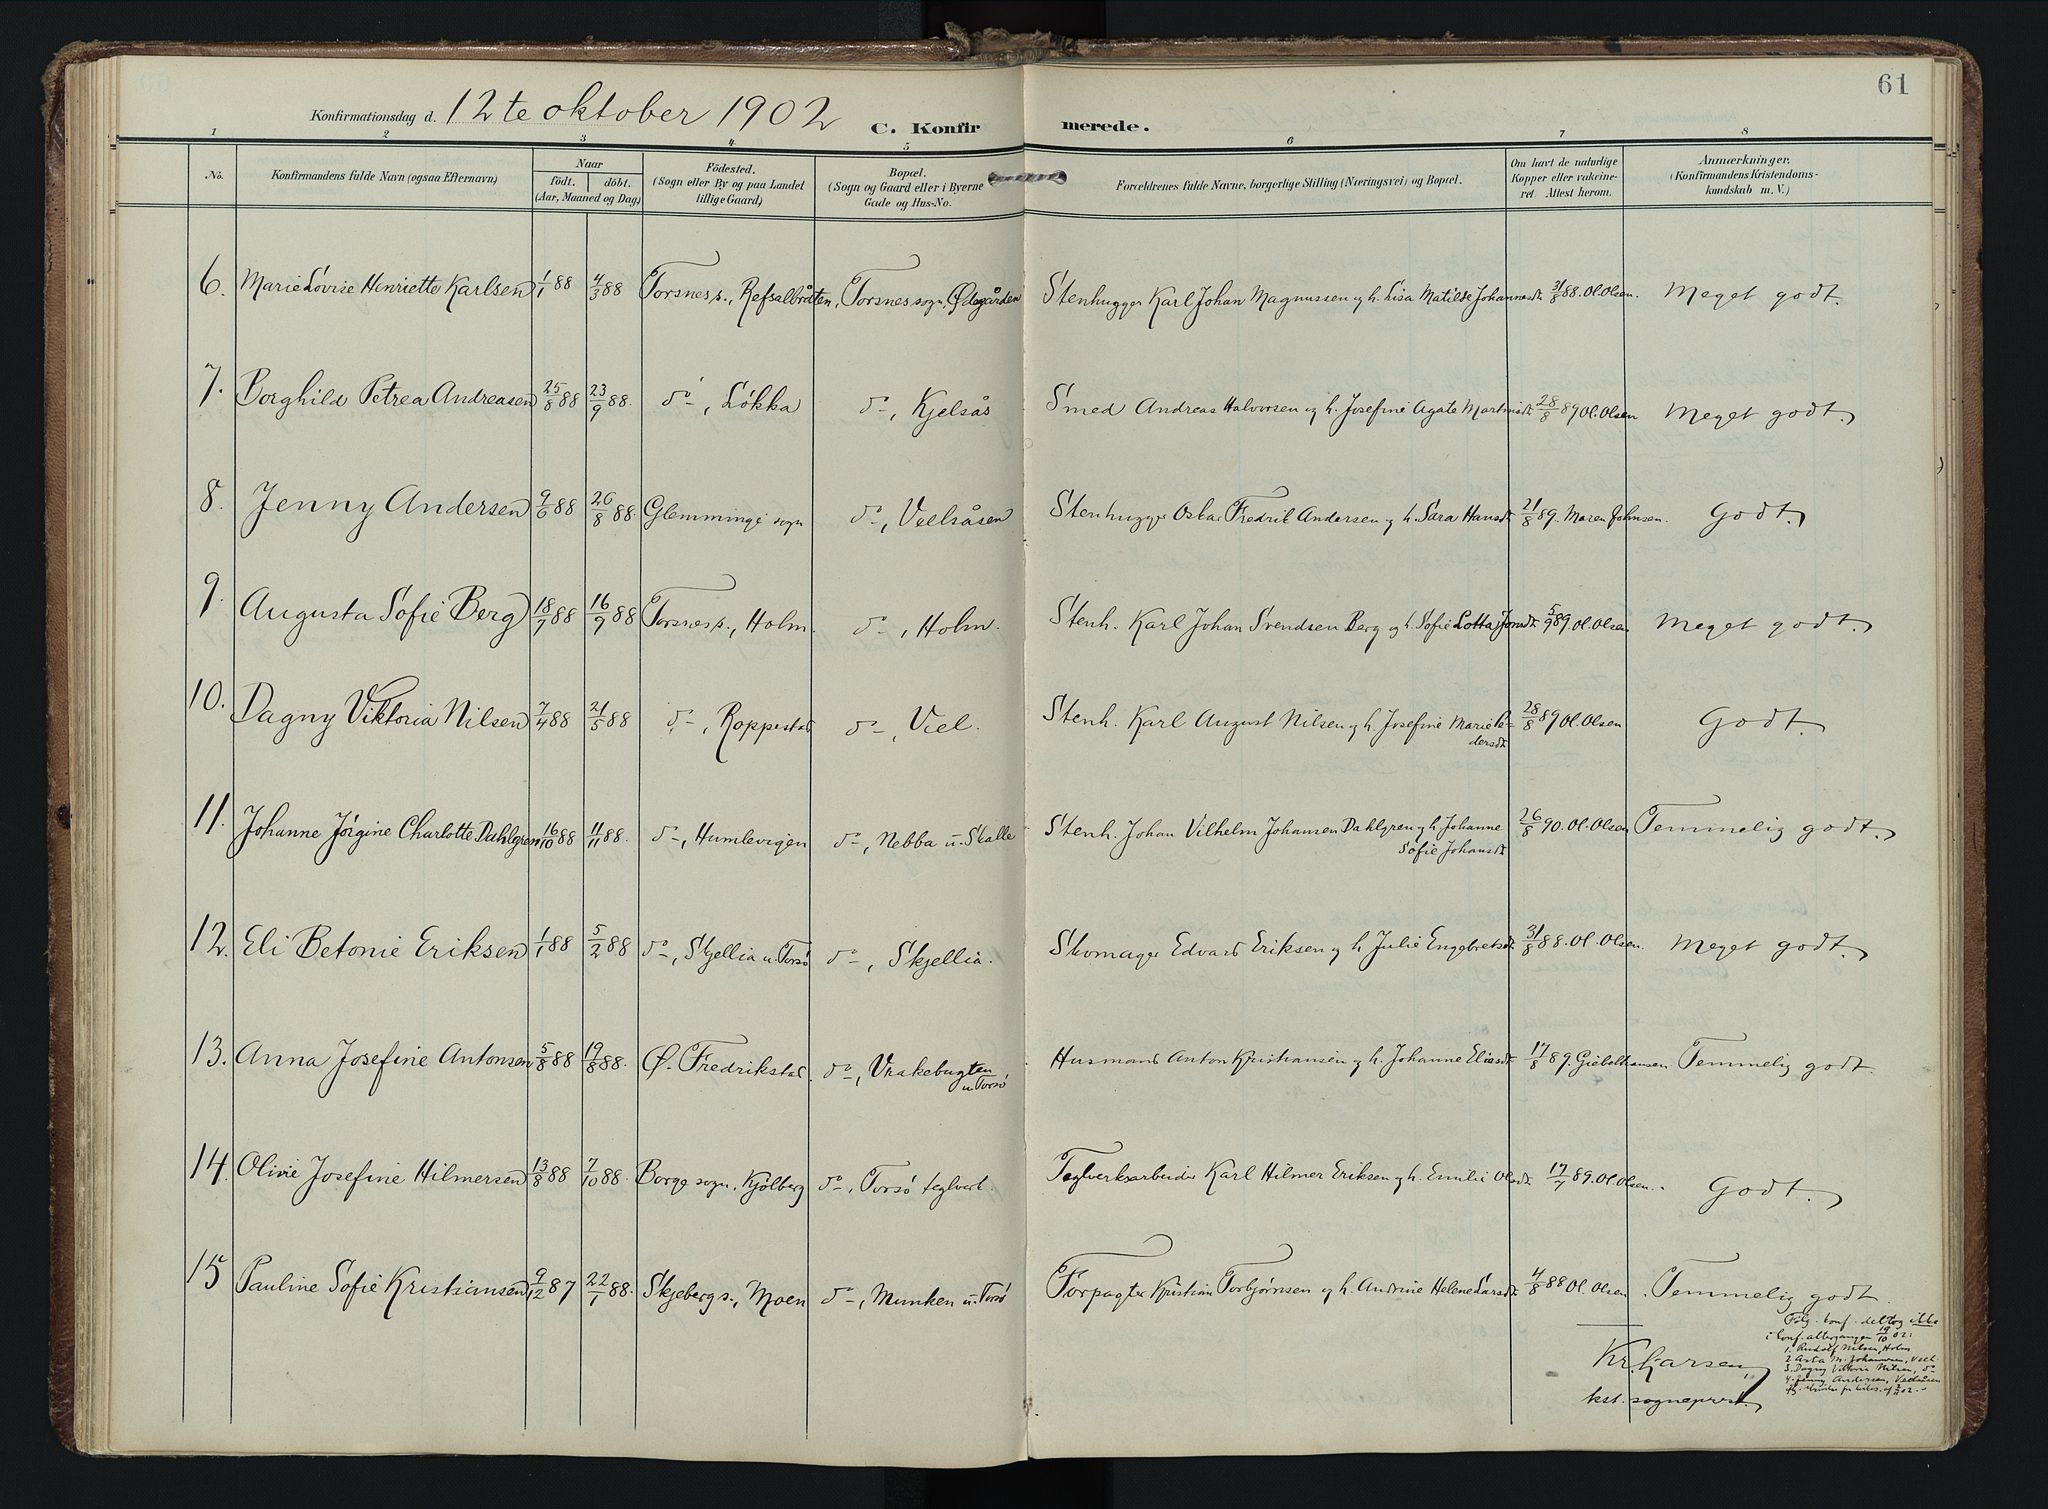 61
Konfirmationsdag d. 12te oktober 1902 C. Konfirmerede.
1 2 3 4 5 6 7 8
No. Konfirmandens fulde Navn (ogsaa Efternavn). Naar födt. döbt. (Aar, Maaned og Dag) Födested. (Sogn eller By og paa Landet tillige Gaard) Bopæl. (Sogn og Gaard eller i Byerne Gade og Hus-No. Forældrenes fulde Navne, borgerlige Stilling (Næringsvei) og Bopæl. Om havt de naturlige Kopper eller vakcineret. Attest herom. Anmærkninger. (Konfirmandens Kristendomskundskab m. V.)
6. Marie Lovise Henriette Karlsen 1/1 88 4/3 88 Torsnes s., Refsalbråten, Torsnes sogn, Ødegården Stenhugger Karl Johan Magnussen og h. Lisa Matilde Johannesdt. 31/8 88. Ol. Olsen. Meget godt.
7. Borghild Petrea Andreasen 25/8 88 23/9 88. do-, Løkka do-, Kjelsås Smed Andreas Halvorsen og h. Josefine Agate Martinsdt. 28/8 89 Ol. Olsen Meget godt.
8. Jenny Andersen 9/6 88 26/8 88. Glemminge sogn do-, Veelsåsen Stenhugger Oskar Fredrik Andersen og h. Sara Hansdt. 21/8 89. Maren Johnsen. Godt.
9. Augusta Sofie Berg 18/7 88 16/9 88 Torsnes s., Holm. do-, Holm. Stenh. Karl Johan Svendsen Berg og h. Sofie Lotta Jonsdt. 5/9 89. Ol. Olsen Meget godt.
10. Dagny Viktoria Nilsen 7/4 88 21/5 88 do-, Roppestad do-, Veel. Stenh. Karl August Nilsen og h. Josefine Marie Pe-
dersdt. 28/8 89 Ol. Olsen Godt.
11. Johanne Jørgine Charlotte Dahlgren 16/10 88 11/11 88. do-, Humlevigen do-, Nebba u. Skalle Stenh. Johan Vilhelm Johansen Dahlgren og h. Johanne
Sofie Johansdt. 26/8 90. Ol. Olsen Temmelig godt.
12. Eli Betonie Eriksen 1/1 88 5/2 88 do-, Skjellia u. Torsø do-, Skjellia. Skomager Edvard Eriksen og h. Julie Engebretsdt. 31/8 88. Ol. Olsen. Meget godt.
13. Anna Josefine Antonsen 5/8 88 19/8 88. Ø. Fredrikstad. do-, Vrakebugten
u. Torsø Husmand Anton Kristiansen og h. Johanne Eliasdt. 17/8 89. Giebelhausen Temmelig godt.
14. Olivie Josefine Hilmersen 13/8 88 7/10 88. Borge sogn, Kjölberg do-, Torsø teglverk. Teglverksarbeider Karl Hilmer Eriksen og h. Emilie Olsdt. 17/7 89. Ol. Olsen. Godt.
15 Pauline Sofie Kristiansen 9/12 87 22/1 88. Skjeberg s., Moen do-, Munken u. Torsø Forpagter Kristian Torbjørnsen og h. Andrine Helene Larsdt. 4/8 88 Ol. Olsen. Temmelig godt.
Følg. konf. deltog ikke
i konf. altergangen 19/10 02:
1. Rudolf Nilsen, Holm
2 Asta M. Johannesen, Veel.
3. Dagny Viktoria Nilsen, do
4. Jenny Andersen, Veelsåsen
Kr. Larsen,
kst. sogneprest.